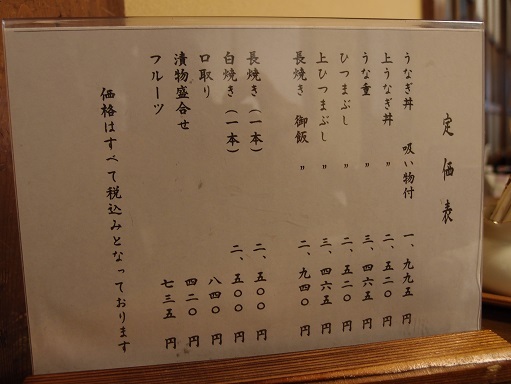 定価表
うなぎ丼 吸い物付 一、九九五 円
上うなぎ丼 〃 二、五二〇 円
うな重 〃 三、四六五 円
ひつまぶし 〃 二、五二〇 円
上ひつまぶし 〃 三、四六五 円
長焼き 御飯 〃 二、九四〇 円
長焼き(一本) 二、五〇〇 円
白焼き(一本) 二、五〇〇 円
口取り 八四〇 円
漬物盛合せ 四二〇 円
フルーツ 七三五 円
価格はすべて税込みとなっております